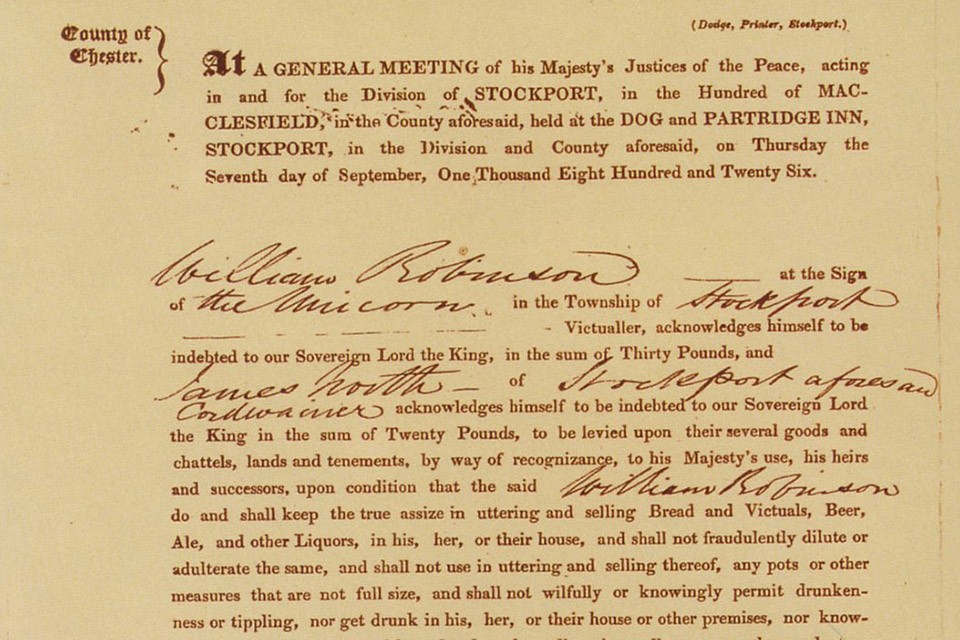 (Dodge, Printer, Stockport.)
County of
Chester.
At A GENERAL MEETING of his Majesty's Justices of the Peace, acting
in and for the Division of STOCKPORT, in the Hundred of MAC-
CLESFIELD, in the County aforesaid, held at the DOG and PARTRIDGE INN,
STOCKPORT, in the Division and County aforesaid, on Thursday the
Seventh day of September, One Thousand Eight Hundred and Twenty Six.
William Robinson at the Sign
of the Unicorn in the Township of Stockport
Victualler, acknowledges himself to be
indebted to our Sovereign Lord the King, in the sum of Thirty Pounds, and
James North of Stockport aforesaid
Cordwainer acknowledges himself to be indebted to our Sovereign Lord
the King in the sum of Twenty Pounds, to be levied upon their several goods and
chattels, lands and tenements, by way of recognizance, to his Majesty's use, his heirs
and successors, upon condition that the said William Robinson
do and shall keep the true assize in uttering and selling Bread and Victuals, Beer,
Ale, and other Liquors, in his, her, or their house, and shall not fraudulently dilute or
adulterate the same, and shall not use in uttering and selling thereof, any pots or other
measures that are not full size, and shall not wilfully or knowingly permit drunken-
ness or tippling, nor get drunk in his, her, or their house or other premises, nor know-